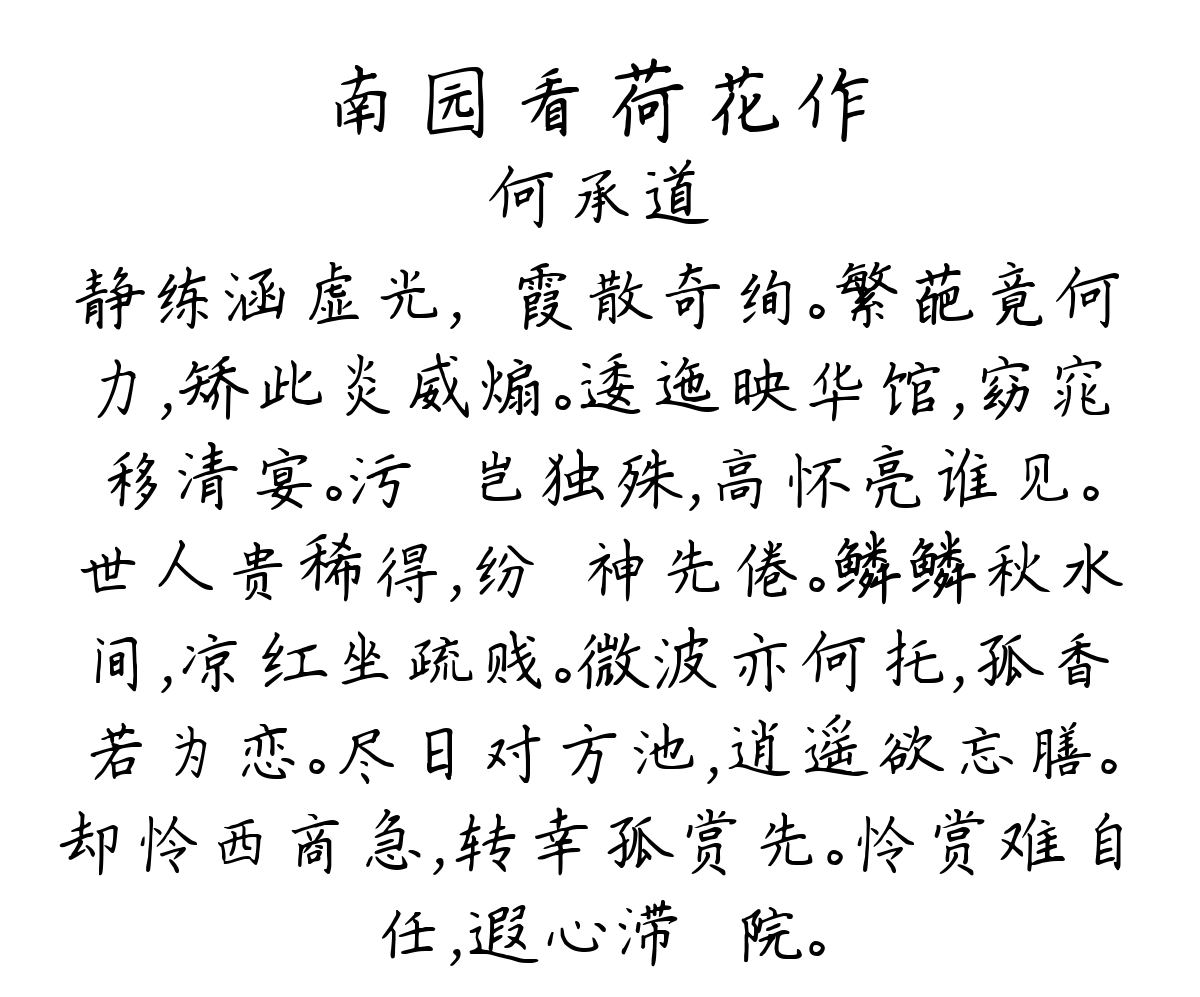 南园看荷花作
何承道
静练涵虚光, 霞散奇绚。繁葩竟何
力,矫此炎威煽。逶迤映华馆,窈窕
移清宴。污 岂独殊,高怀亮谁见。
世人贵稀得,纷 神先倦。鳞鳞秋水
间,凉红坐疏贱。微波亦何托,孤香
若为恋。尽日对方池,逍遥欲忘膳。
却怜西商急,转幸孤赏先。怜赏难自
任,遐心滞 院。